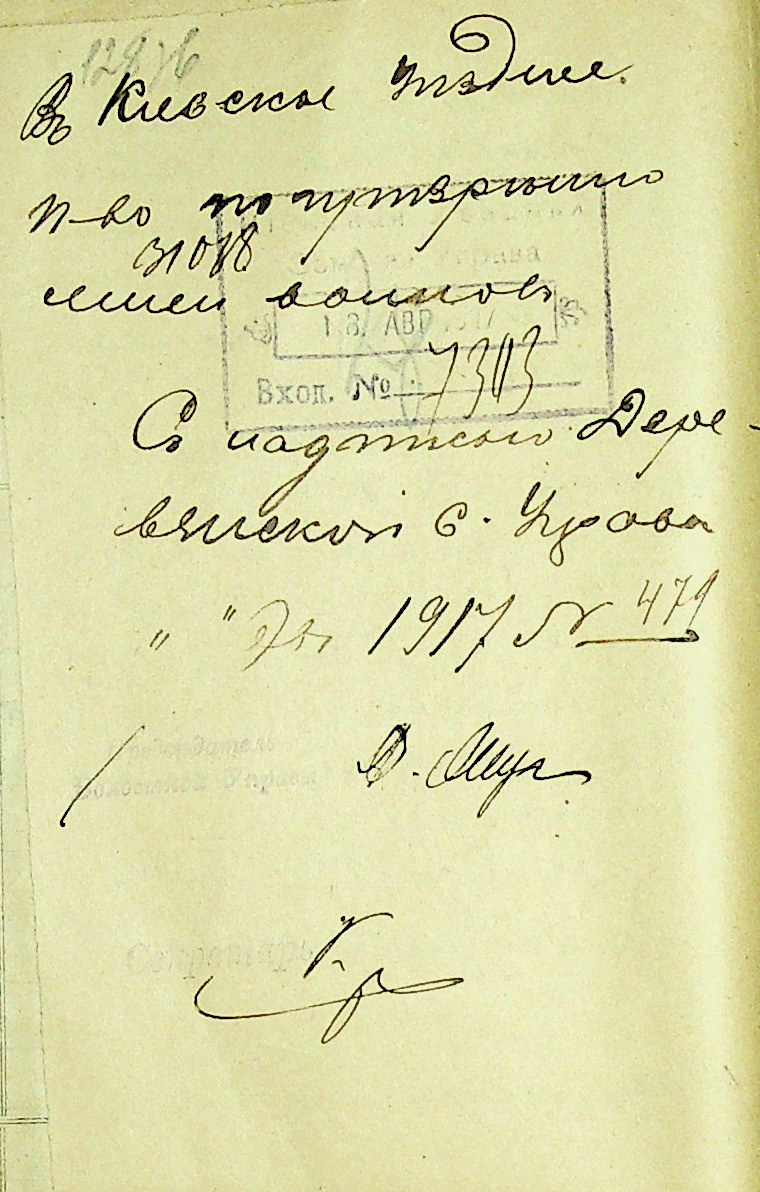 Въ Киевское уѣздное
п-во по
31018
семей воиновъ
Земская Управа
18 АВГ 1917
Вход. № 7303
Съ надписью Дере-
вянской с. Управа
" " 1917 № 479
Председатель
Волостной Управы
Секретарь